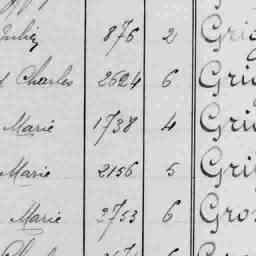 876 2 Gri
Charles 2624 6 Gri
Marie 1738 4 Gri
Marie 2156 5 Gri
Marie 2753 6 Gro